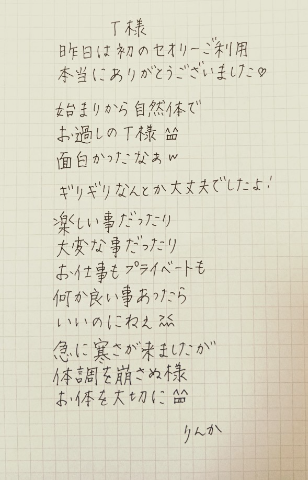 T様
昨日は初のセオリーご利用
本当にありがとうございました♡
始まりから自然体で
お過しのT様 ^^
面白かったなぁw
ギリギリなんとか大丈夫でしたよ!
楽しい事だったり
大変な事だったり
お仕事もプライベートも
何か良い事あったら
いいのにねぇ
急に寒さが来ましたが
体調を崩さぬ様
お体を大切に ^^
りんか